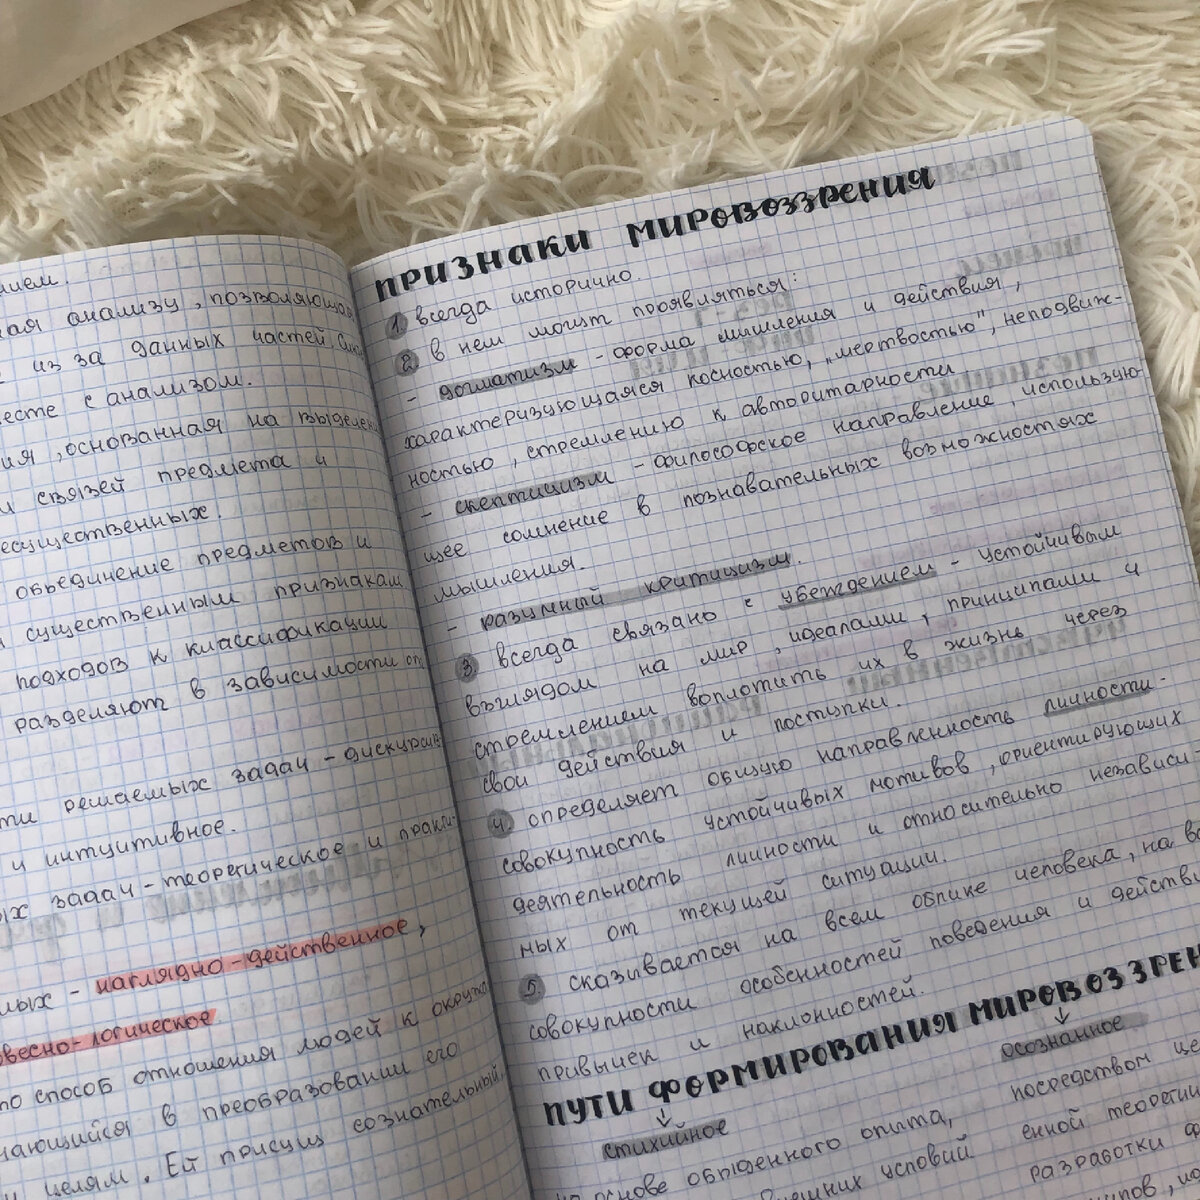 нием.
ная анализу, позволяющая
из за данных частей.
месте с анализом.
ия, основанная на выделен
и связей предмета и
есущественных.
объединение предметов и
существенным признакам
подходов к классификации
разделяют в зависимости от
ти решаемых задач - дискурсив
и интуитивное.
ых задач - теоретическое и практи-
мых - наглядно-действенное,
овесно-логическое
то способ отношения людей к окружа
чающийся в преобразовании его
целям. Ей присущ сознательный,
ПРИЗНАКИ МИРОВОЗЗРЕНИЯ
1. всегда исторично.
2. в нем могут проявляться:
- догматизм - форма мышления и действия,
характеризующаяся косностью, „мертвостью", неподвиж-
ностью, стремлению к авторитарности
- скептицизм - философское направление, использую-
щее сомнение в познавательных возможностях
мышления.
- разумный критицизм.
3. всегда связано с убеждением - устойчивым
взглядом на мир, идеалами, принципами и
стремлением воплотить их в жизнь через
свои действия и поступки.
4. определяет общую направленность личности -
совокупность устойчивых мотивов, ориентирующих
деятельность личности и относительно независи
ных от текущей ситуации.
5. сказывается на всем облике человека, на всей
совокупности особенностей поведения и действий
привычек и наклонностей.
ПУТИ ФОРМИРОВАНИЯ МИРОВОЗЗРЕН
↓ стихийное
↓ осознанное
на основе обыденного опыта,
внешних условий
посредством це
енной теорети
разработки